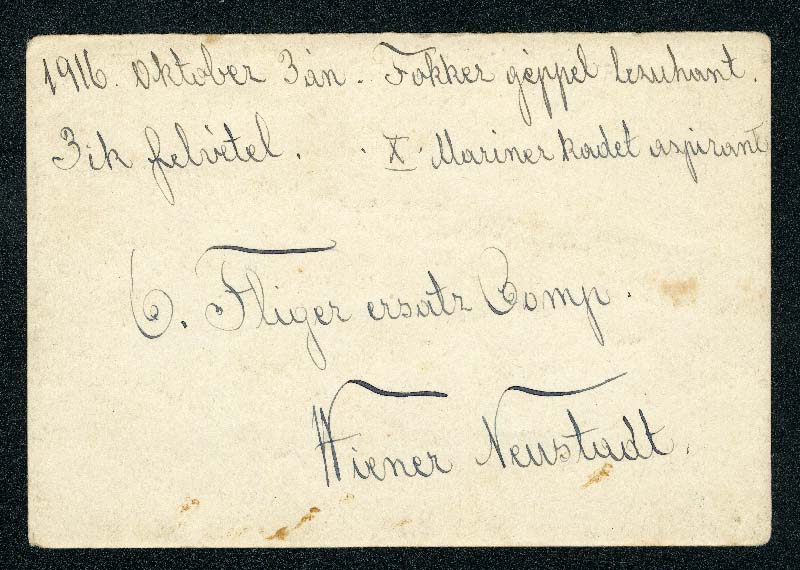 1916. Oktober 3án. Fokker géppel lezuhant.
3ik felvétel. X. Mariner kadet aspirant
6. Fliger ersatz Comp.
Wiener Neustadt.